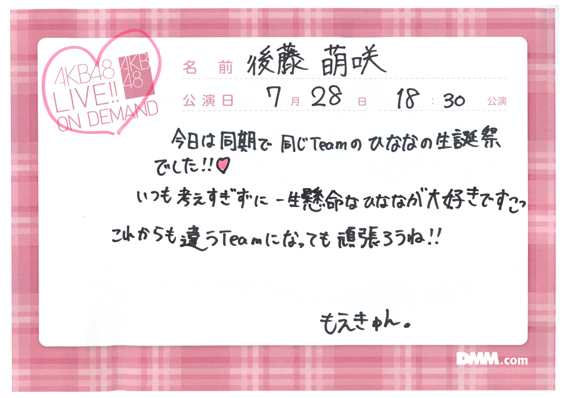 AKB48
LIVE!!
ON DEMAND
AKB
48
名前 後藤 萌咲
公演日 7月28日 18:30公演
今日は同期で同じTeamのひななの生誕祭
でした!!♥
いつも考えすぎずに一生懸命なひななが大好きですこっ
これからも違うTeamになっても頑張ろうね!!
もえきゅん。
DMM.com